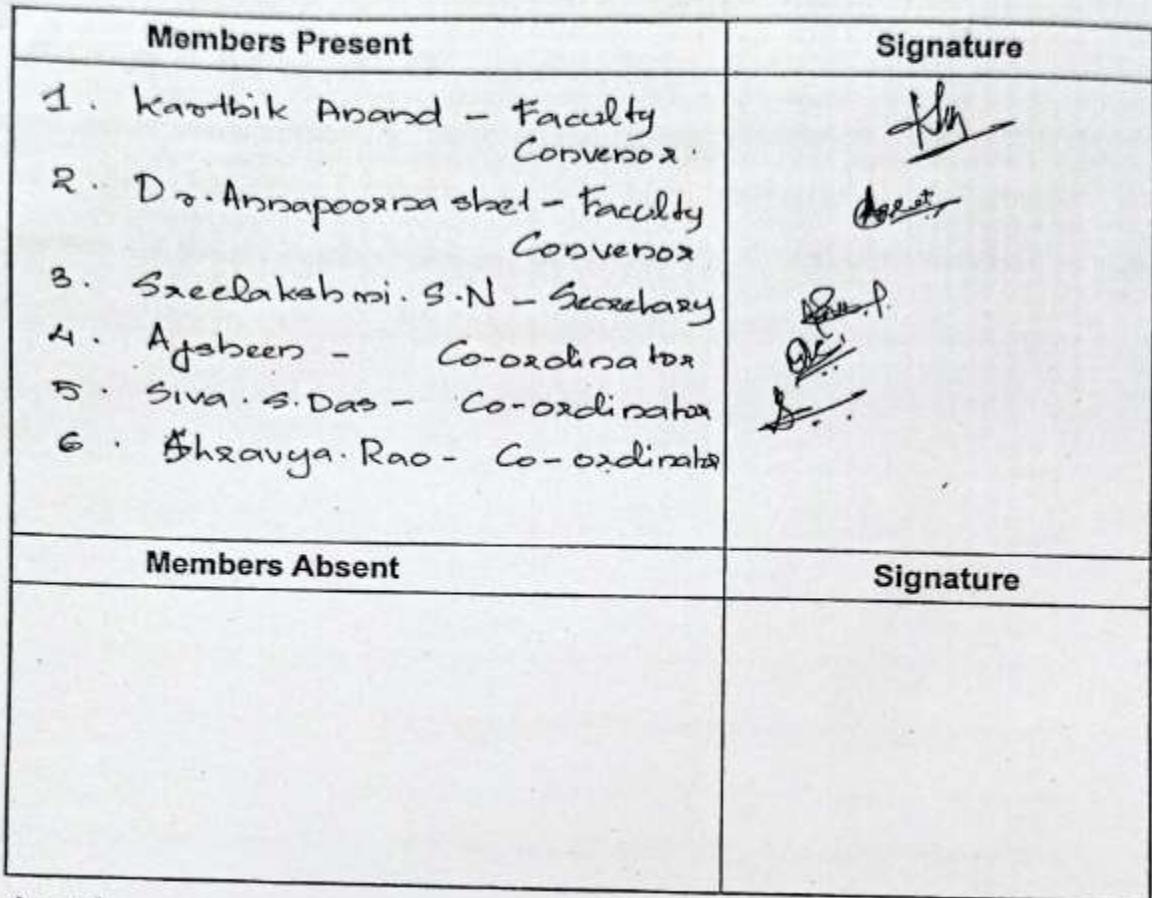 Members Present Signature
1. Karthik Anand - Faculty
Convenor.
2. Dr. Annapoorna shet - Faculty
Convenor
3. Sreelakshmi. S.N - Secretary
4. Afsheen - Co-ordinator
5. Siva. S. Das - Co-ordinator
6. Shravya. Rao - Co-ordinator
Members Absent Signature